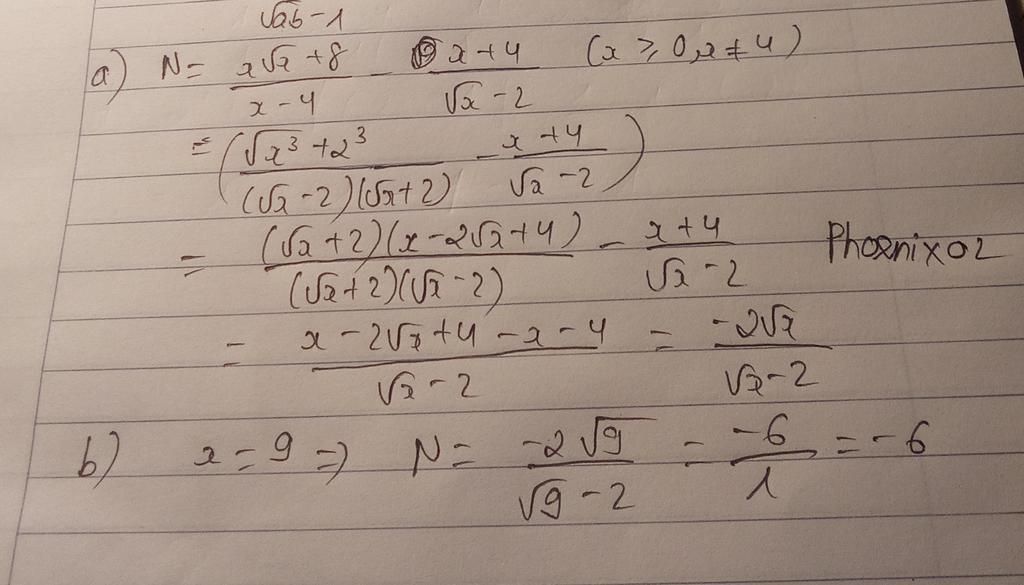 √ab - 1
a) N = (x√x + 8)/(x - 4) - (x + 4)/(√x - 2) (x ≥ 0, x ≠ 4)
= ((√x³ + 2³)/((√x - 2)(√x + 2)) - (x + 4)/(√x - 2))
= ((√x + 2)(x - 2√x + 4))/((√x + 2)(√x - 2)) - (x + 4)/(√x - 2) Phoenix02
= (x - 2√x + 4 - x - 4)/(√x - 2) = (-2√x)/(√x - 2)
b) x = 9 => N = (-2√9)/(√9 - 2) = (-6)/1 = -6